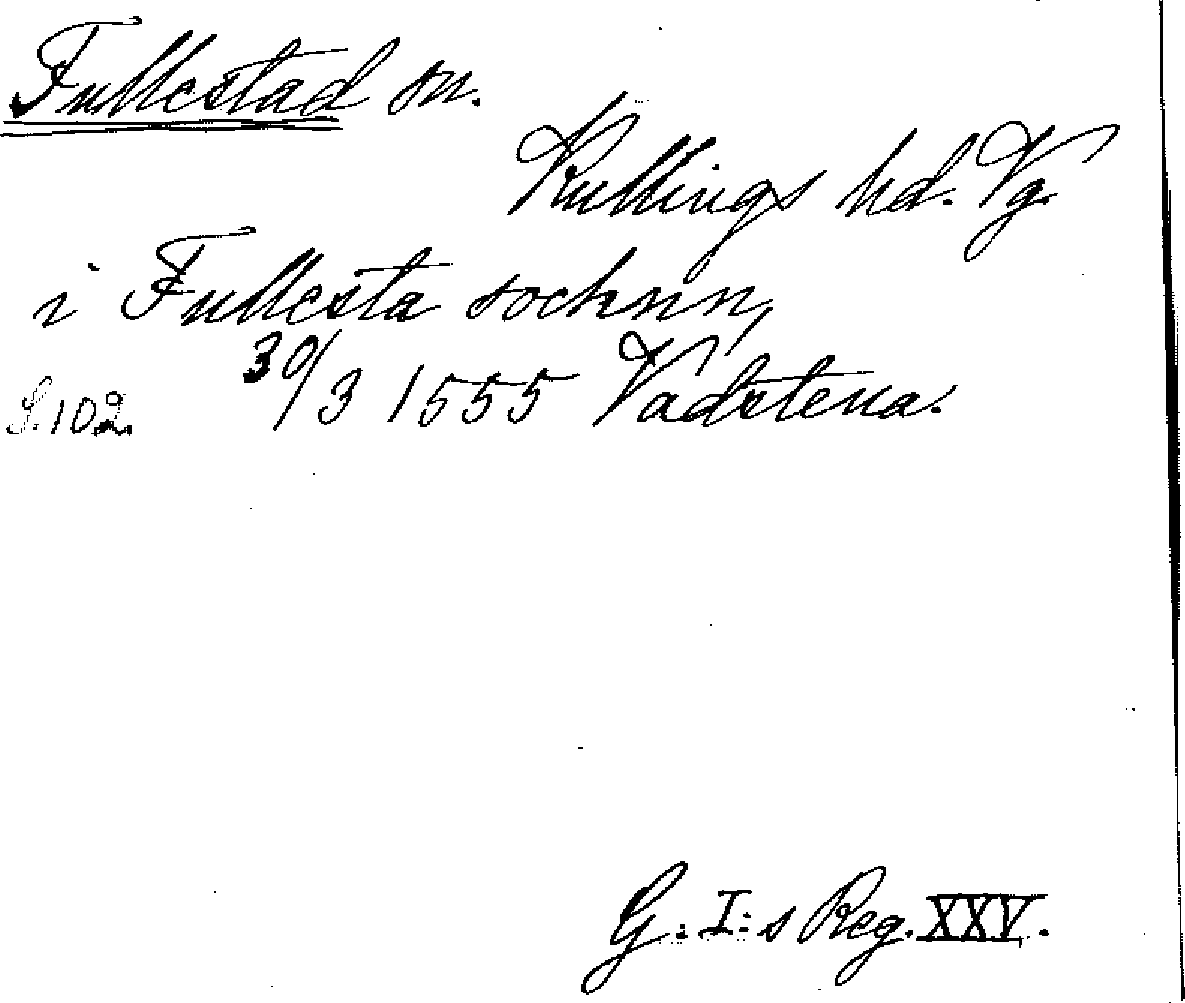 Fullestad sn.
Kullings hd. Vg.
i Fullesta sochnn,
30/3 1555 Vadstena.
S. 102.
G. I:s Reg. XXV.